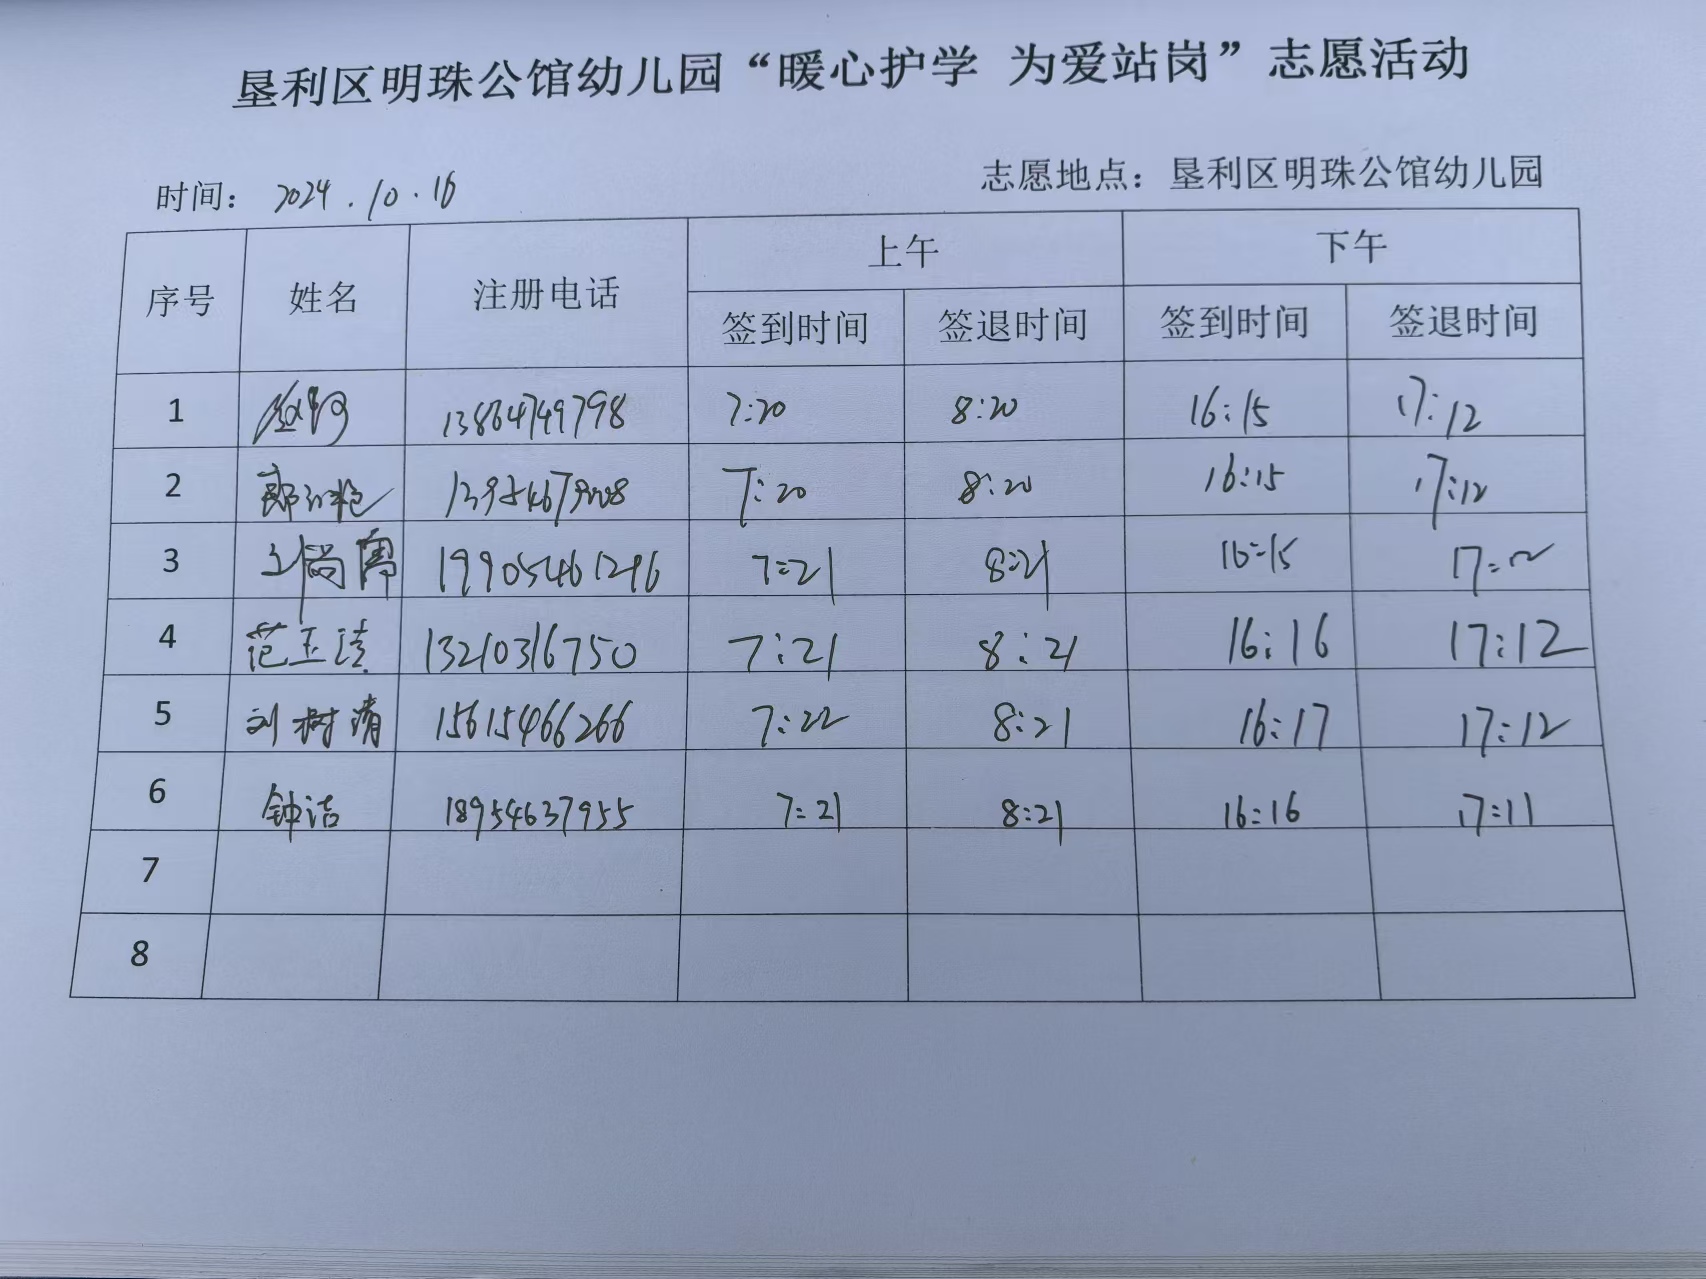 垦利区明珠公馆幼儿园“暖心护学 为爱站岗”志愿活动
时间： 2024.10.16 志愿地点：垦利区明珠公馆幼儿园
序号 姓名 注册电话 上午 下午
签到时间 签退时间 签到时间 签退时间
1 13864749798 7:20 8:20 16:15 17:12
2 7:20 8:20 16:15 17:12
3 19905461296 7:21 8:21 16:15 17:12
4 范玉洁 13210316750 7:21 8:21 16:16 17:12
5 刘树清 15615466266 7:22 8:21 16:17 17:12
6 钟洁 18954637955 7:21 8:21 16:16 17:11
7
8